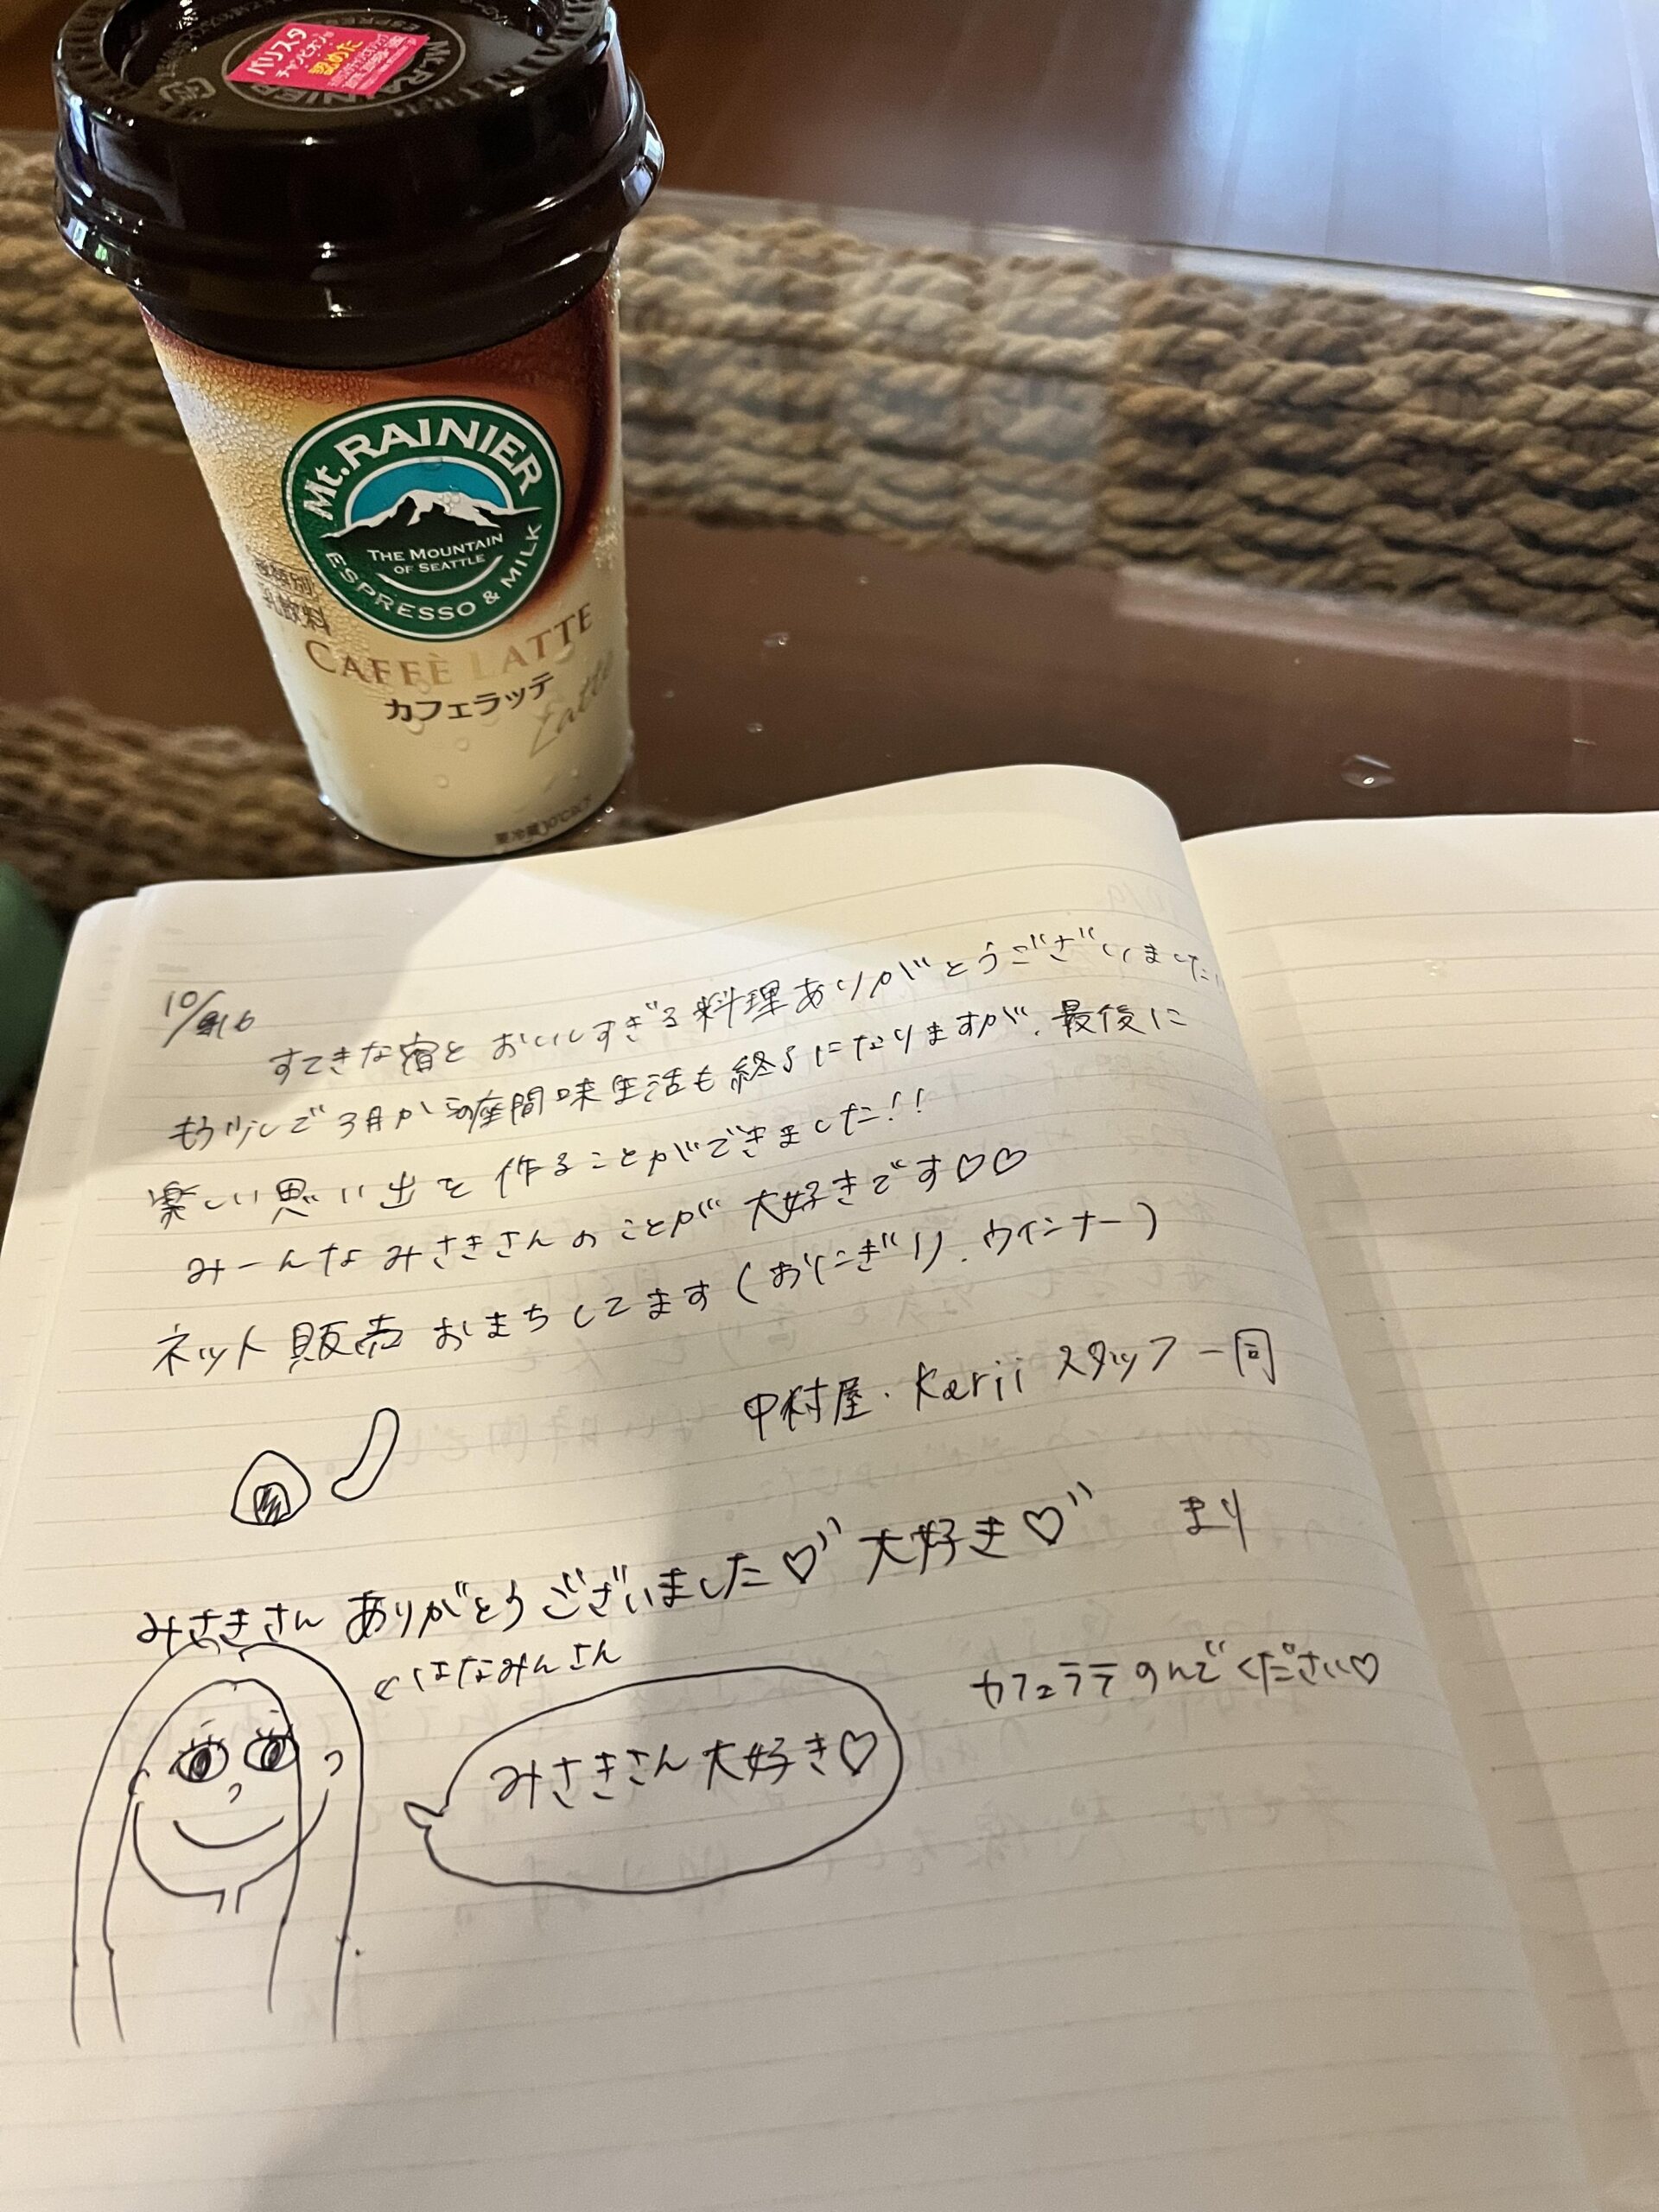 バリスタ
チャンピオンが
認めた
Mt. RAINIER
ESPRESSO
Mt. RAINIER
THE MOUNTAIN
OF SEATTLE
ESPRESSO & MILK
種類別
乳飲料
CAFFÈ LATTE
カフェラッテ
Latte
要冷蔵10℃以下
10/16
すてきな宿と おいしすぎる料理ありがとうございました
もう少しで3月から座間味生活も終了になりますが、最後に
楽しい思い出を作ることができました!!
みーんなみさきさんのことが大好きです♡♡
ネット販売おまちしてます(おにぎり、ウインナー)
中村屋・Karii スタッフ一同
みさきさんありがとうございました♡大好き♡ まり
←はなみんさん
カフェラテのんでください♡
みさきさん大好き♡